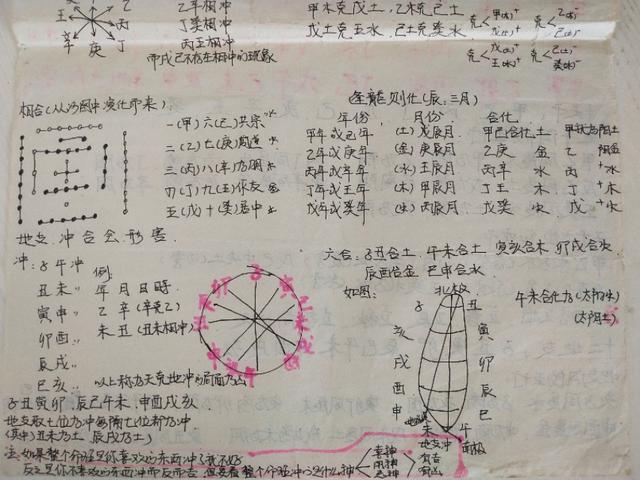 乙辛相冲
丁癸相冲
丙壬相冲
而戊己不存在相冲的现象
壬 丙
辛 庚 丁
甲木克戊土，乙木克己土
戊土克壬水，己土克癸水
相合(从河图中演化而来)
一(甲)六(己)共宗
二(乙)七(庚)同道
三(丙)八(辛)为朋
四(丁)九(壬)作友
五(戊)十(癸)居中
逢龍则化(辰:三月)
年份 月份 合化
甲年或己年 (土)戊辰月 甲己合化土 甲
乙年或庚年 (金)庚辰月 乙庚 金 乙
丙年或辛年 (水)壬辰月 丙辛 水 丙 水
丁年或壬年 (木)甲辰月 丁壬 木 丁 木
戊年或癸年 (火)丙辰月 戊癸 火 戊 火
地支.冲合会.形害.
冲：子午冲 例:
丑未〃 年月日时
寅申〃 乙辛(辛克乙)
卯酉〃 未丑(丑未相冲)
辰戌〃
巳亥〃 以上称为天克地冲的
子丑寅卯.辰巳午未.申酉戌亥.
地支取七位为冲
(其中)丑未为土 辰戌为土)
六合：子丑合土.午未合土 寅亥合木 卯戌合火
辰酉合金 巳申合水.
如图:
北极
子 丑
亥 寅
戌 卯
酉 辰
申 巳
未 午
南极
地支冲
午未合化为(太阳火)
(太阴土)
注:如果整个命局是你喜欢的东西冲了就不好
反之是你不喜欢的东西冲而反而吉
喜神
用神
忌神